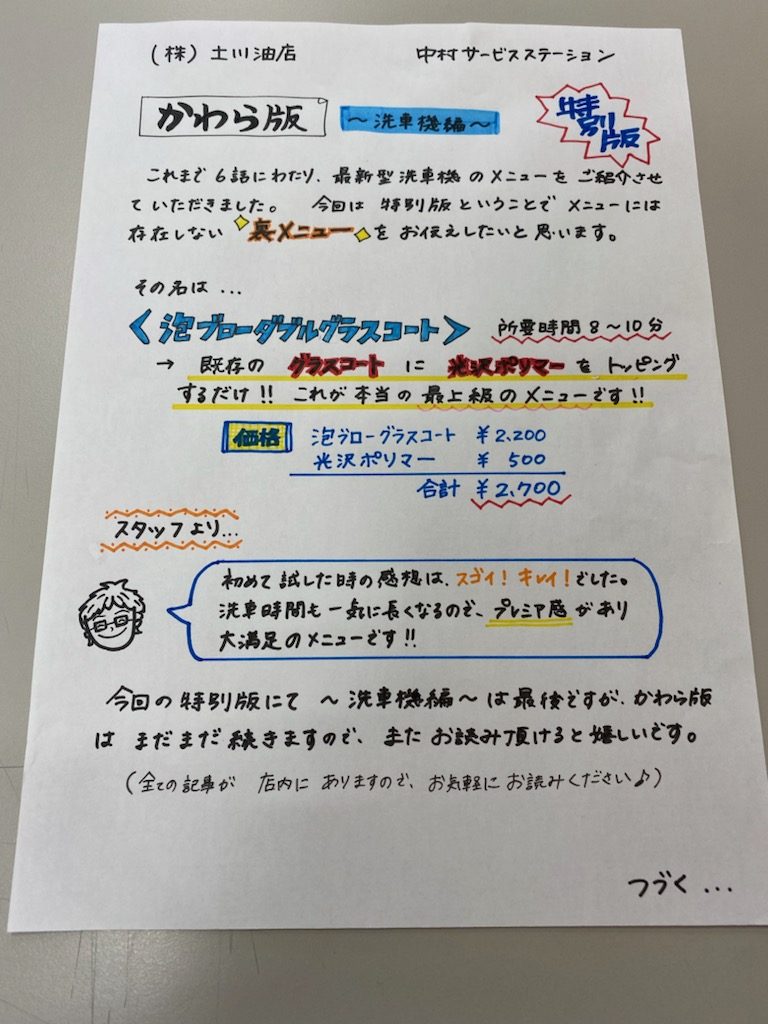 (株)土川油店 中村サービスステーション
かわら版 ～洗車機編～ 特別版
これまで6話にわたり、最新型洗車機のメニューをご紹介させ
ていただきました。 今回は特別版ということでメニューには
存在しない 裏メニュー をお伝えしたいと思います。
その名は...
〈泡ブローダブルグラスコート〉 所要時間8～10分
→ 既存の グラスコート に 光沢ポリマー を トッピング
するだけ!! これが本当の最上級のメニューです!!
価格 泡ブローグラスコート ¥2,200
光沢ポリマー ¥ 500
合計 ¥2,700
スタッフより...
初めて試した時の感想は、スゴイ!キレイ!でした。
洗車時間も一気に長くなるので、プレミア感があり
大満足のメニューです!!
今回の特別版にて ～洗車機編～は最後ですが、かわら版
は まだまだ続きますので、またお読み頂けると嬉しいです。
(全ての記事が 店内に ありますので、お気軽にお読みください♪)
つづく...